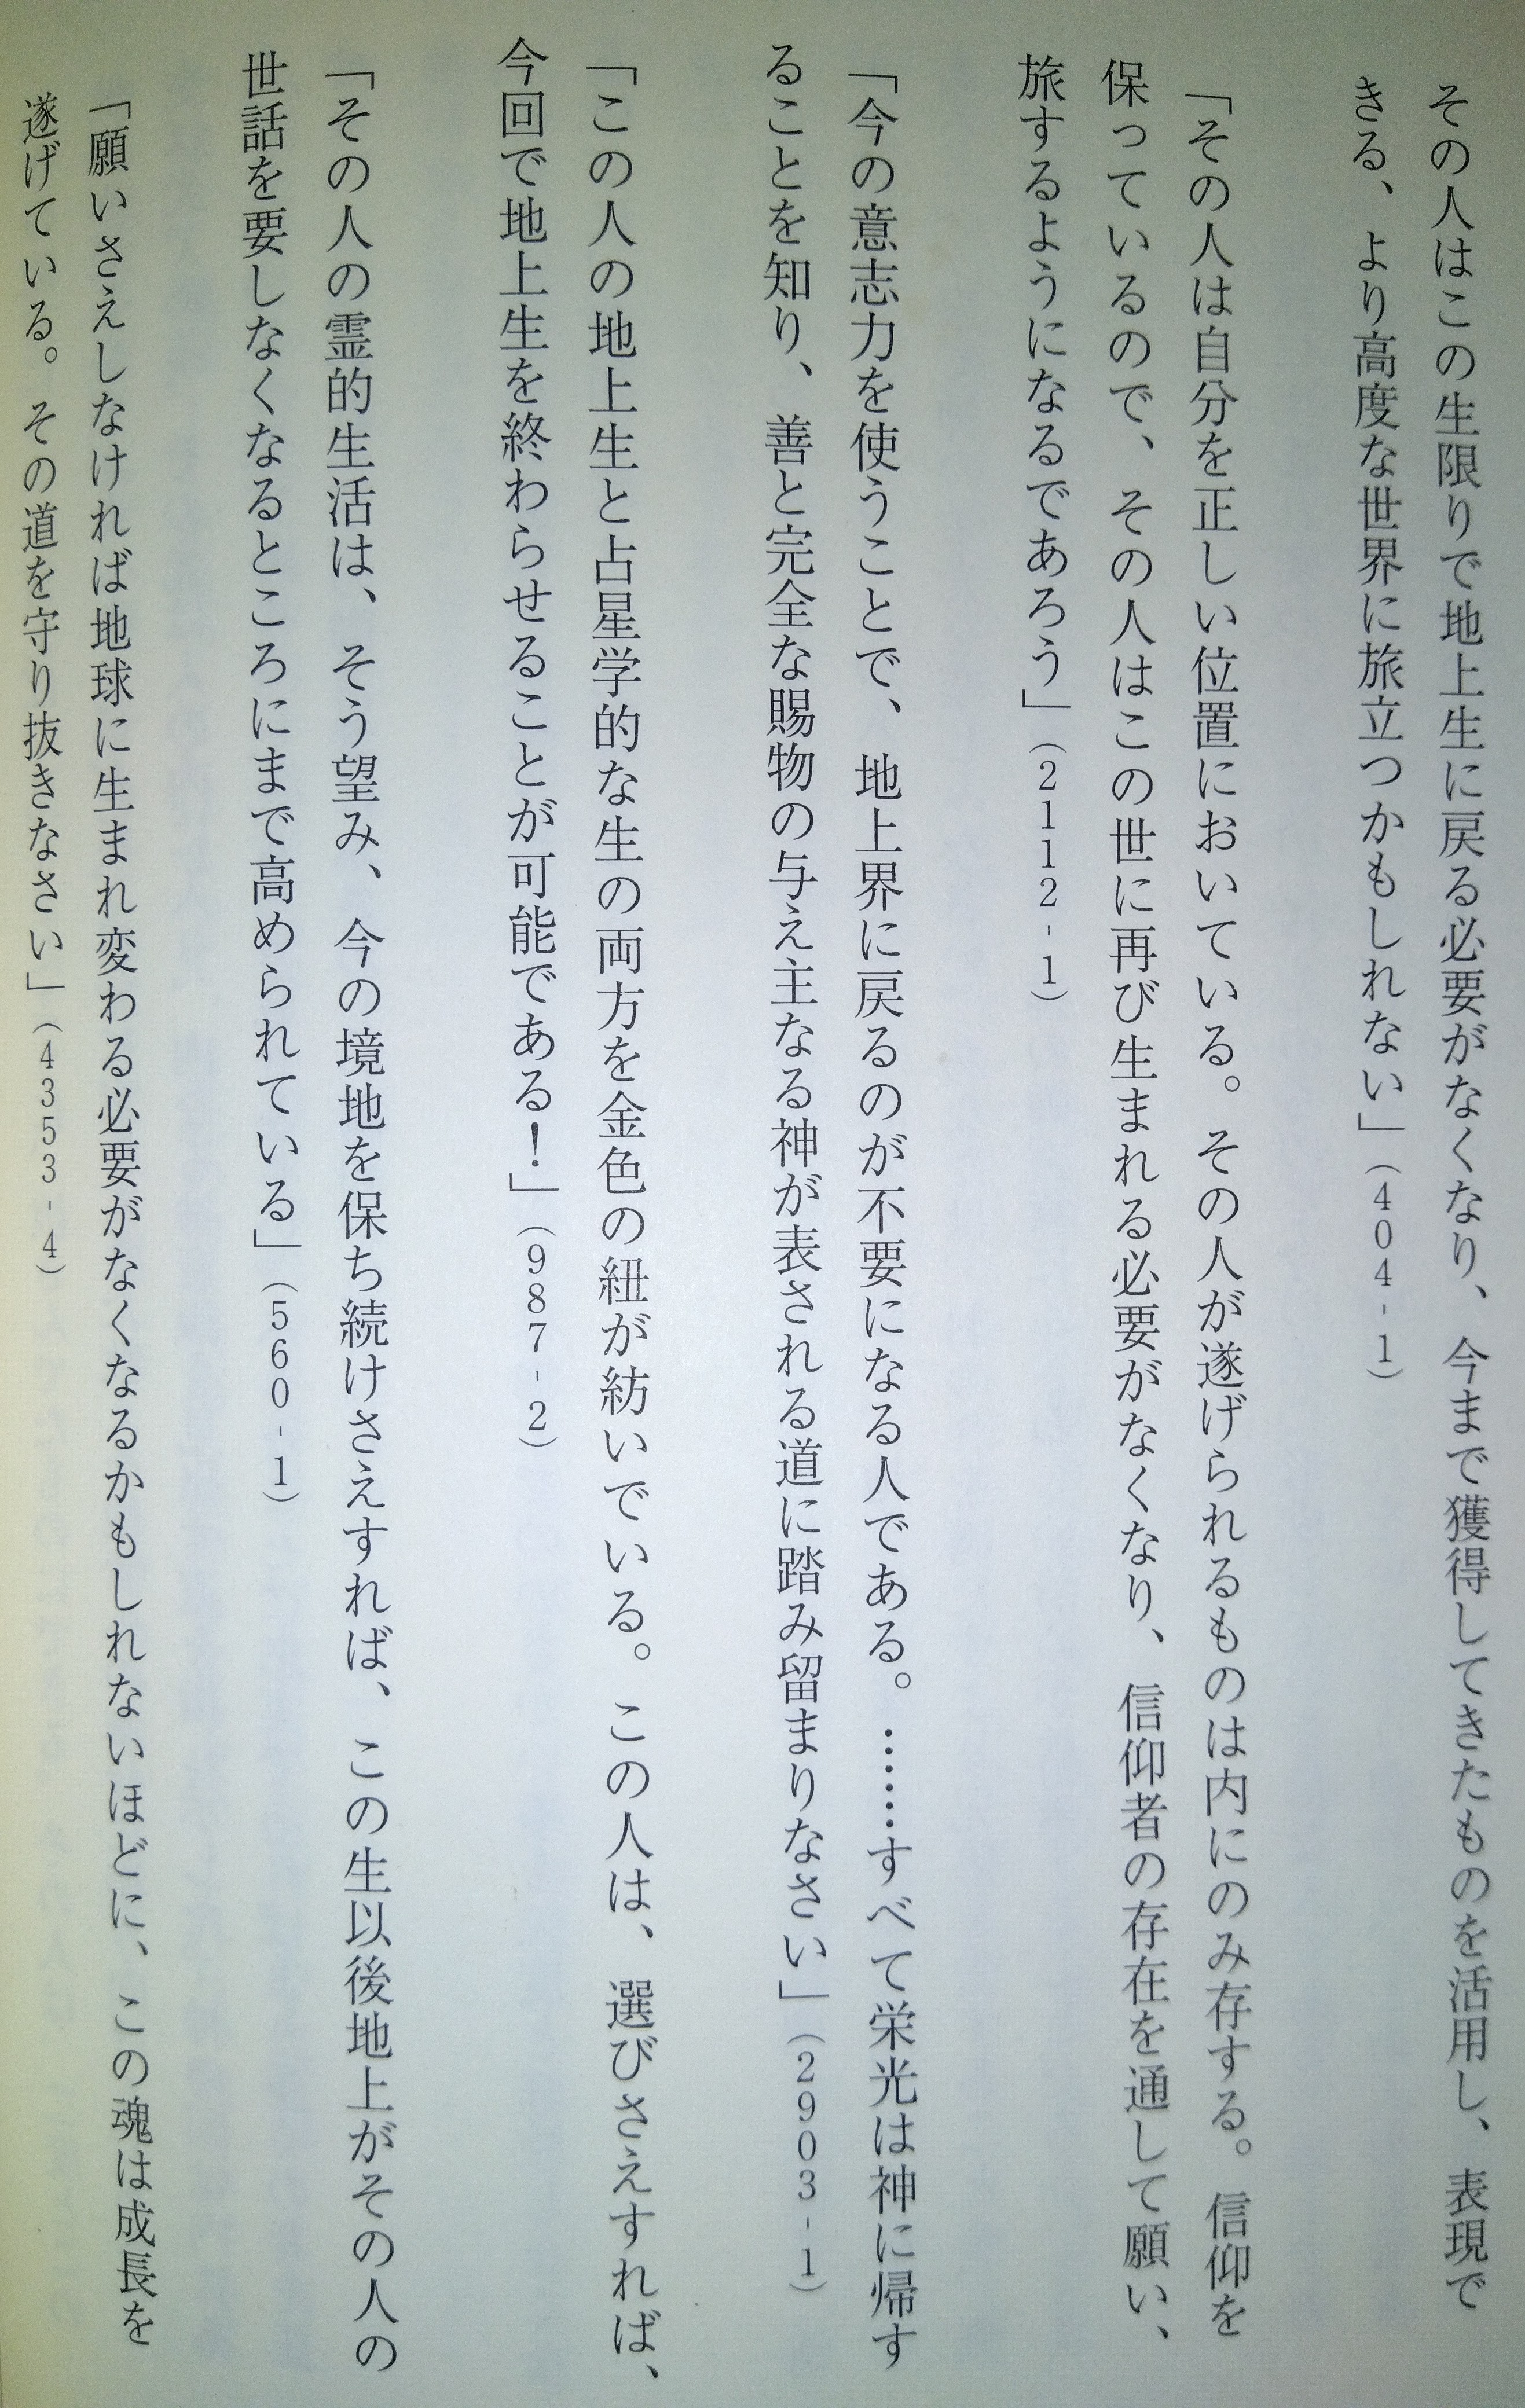 その人はこの生限りで地上生に戻る必要がなくなり、今まで獲得してきたものを活用し、表現で
きる、より高度な世界に旅立つかもしれない」(404-1)
「その人は自分を正しい位置においている。その人が遂げられるものは内にのみ存する。信仰を
保っているので、その人はこの世に再び生まれる必要がなくなり、信仰者の存在を通して願い、
旅するようになるであろう」(2112-1)
「今の意志力を使うことで、地上界に戻るのが不要になる人である。……すべて栄光は神に帰す
ることを知り、善と完全な賜物の与え主なる神が表される道に踏み留まりなさい」(2903-1)
「この人の地上生と占星学的な生の両方を金色の紐が紡いでいる。この人は、選びさえすれば、
今回で地上生を終わらせることが可能である!」(987-2)
「その人の霊的生活は、そう望み、今の境地を保ち続けさえすれば、この生以後地上がその人の
世話を要しなくなるところにまで高められている」(560-1)
「願いさえしなければ地球に生まれ変わる必要がなくなるかもしれないほどに、この魂は成長を
遂げている。その道を守り抜きなさい」(4353-4)